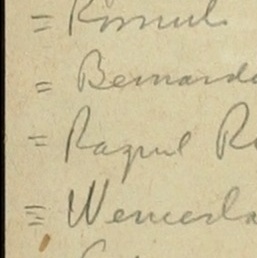 = Rómul
= Bernardo
= Raquel R
= Wencesla